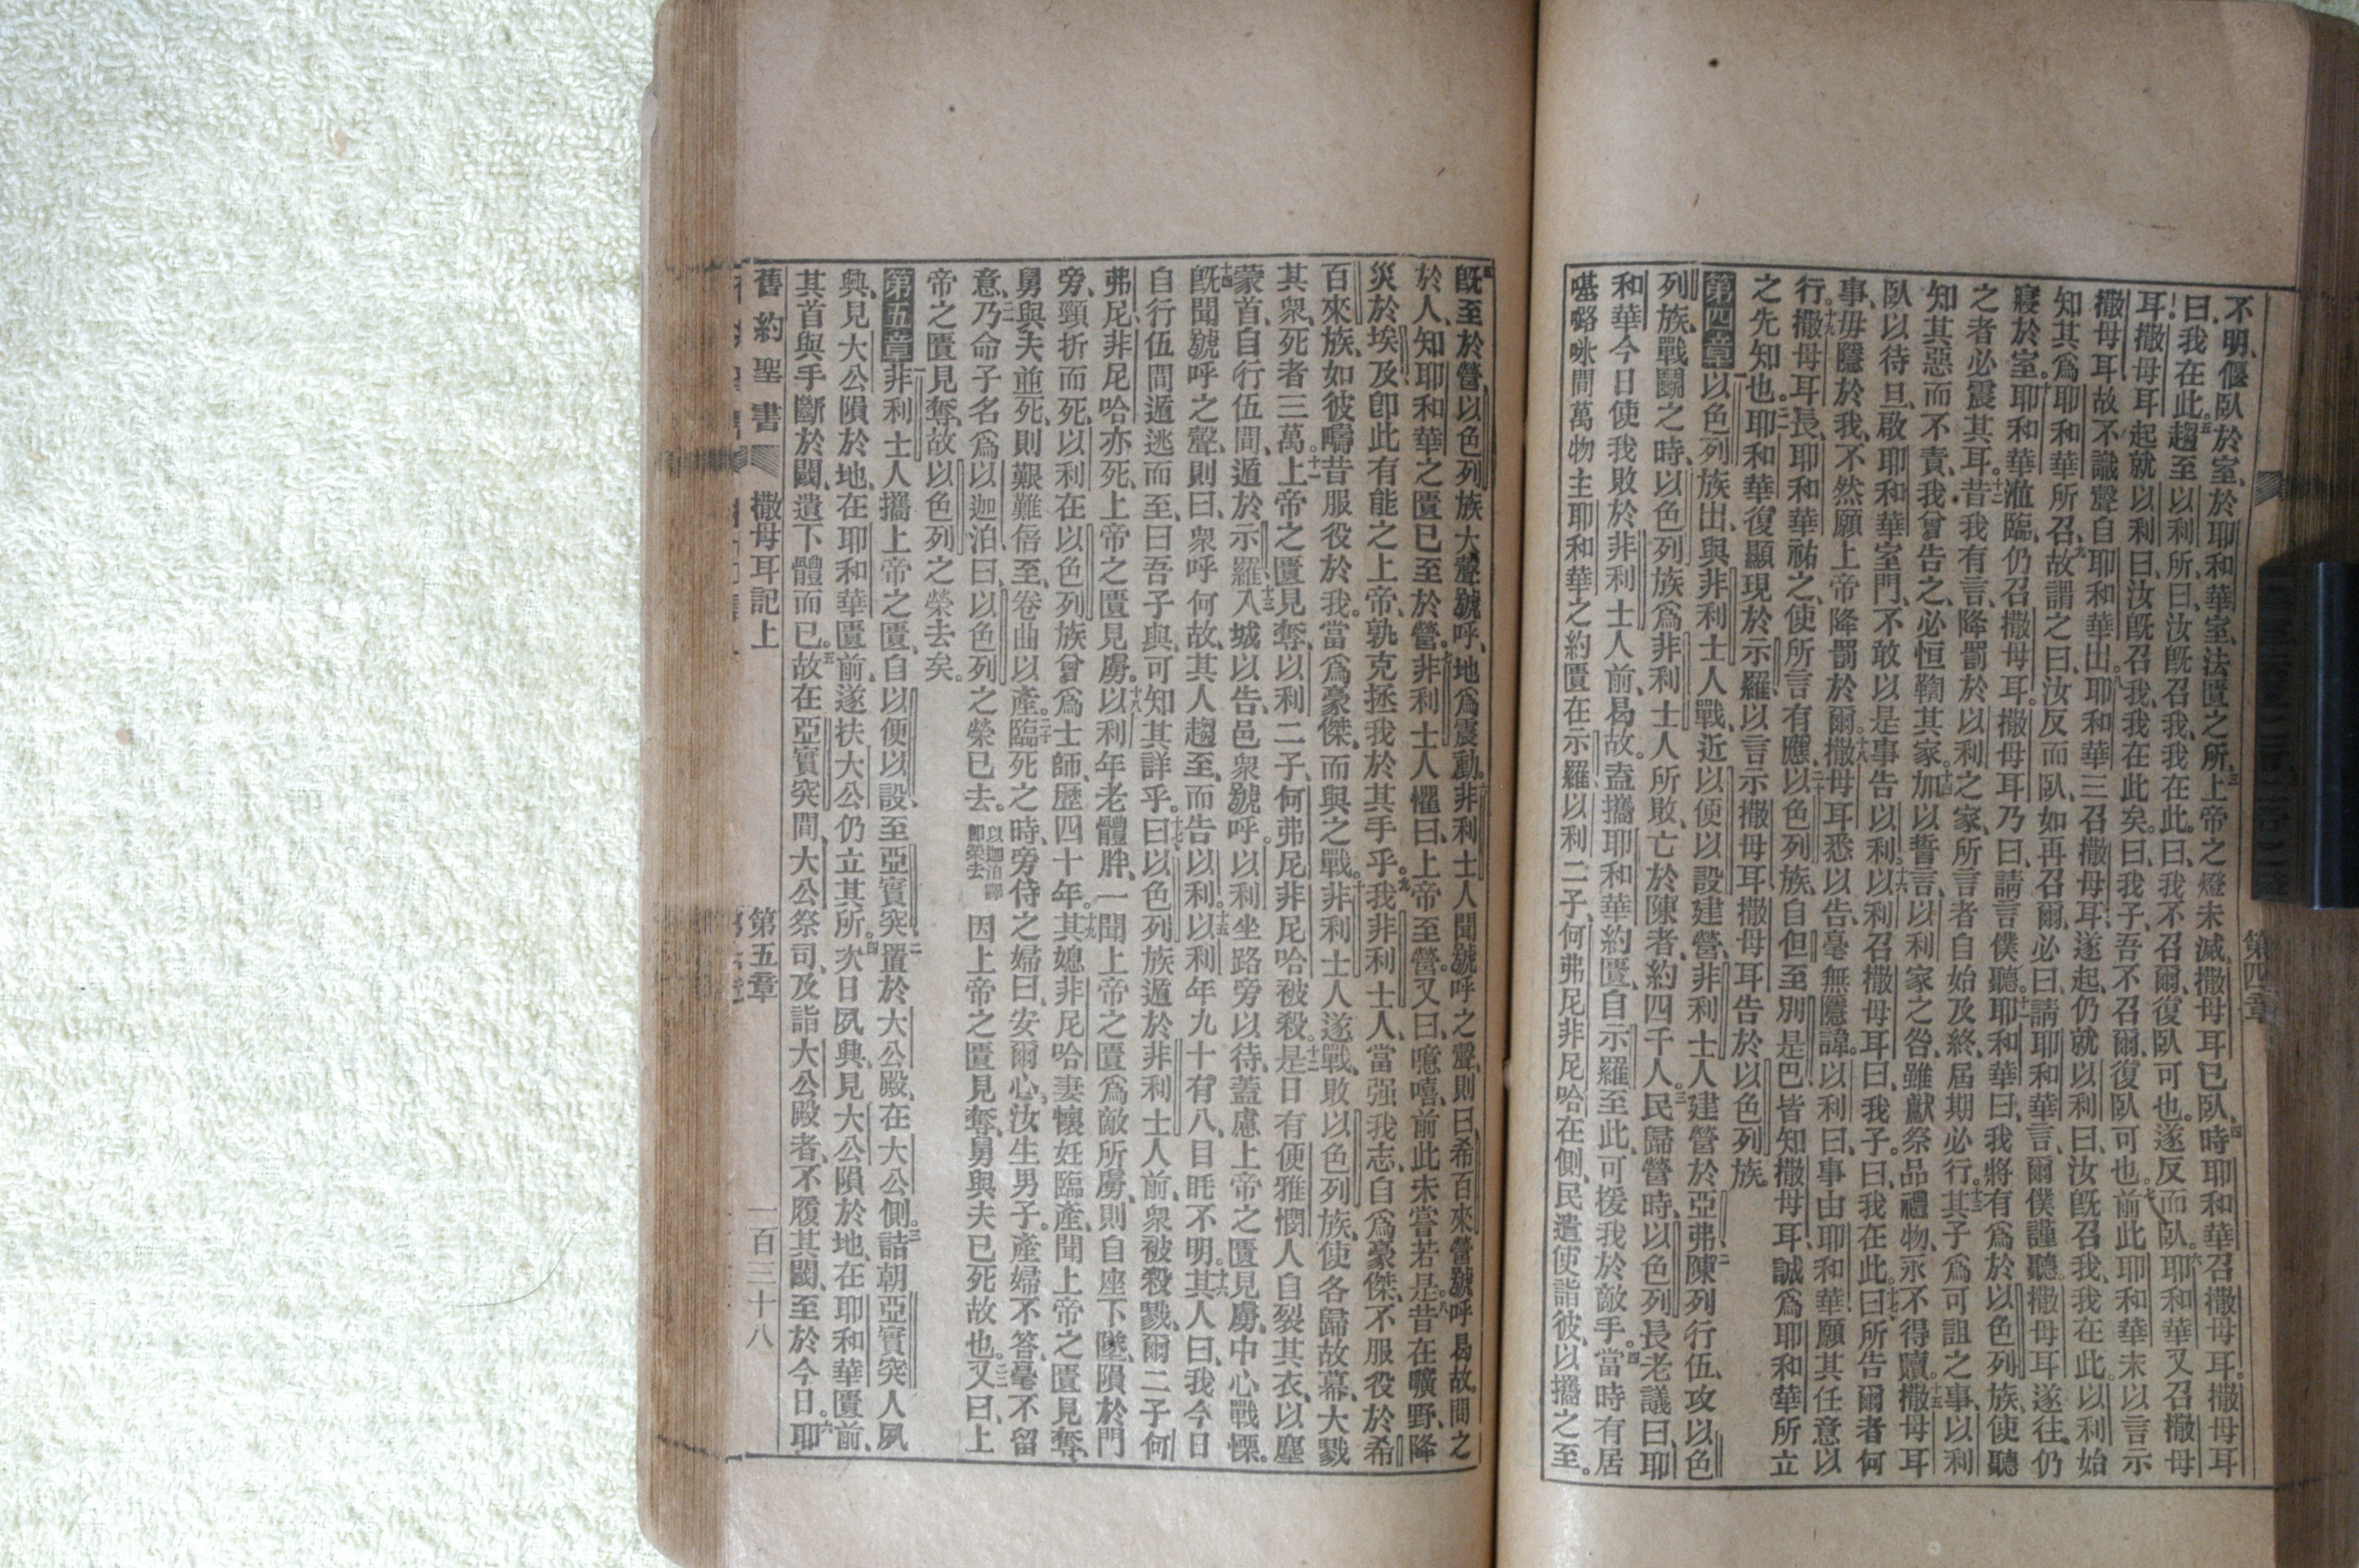 不明、偃臥於室、於耶和華室、法匱之所、三上帝之燈未滅、撒母耳已臥、四時耶和華召撒母耳。撒母耳
曰、我在此。五趨至以利所、曰、汝旣召我、我在此、曰、我不召爾、復臥可也。遂反而臥。六耶和華又召撒母
耳、撒母耳起、就以利曰、汝旣召我、我在此矣。曰、我子、吾不召爾、復臥可也。七前此耶和華未以言示
撒母耳、故不識聲自耶和華出。八耶和華三召撒母耳、遂起、仍就以利曰、汝旣召我、我在此。以利始
知其爲耶和華所召、九故謂之曰、汝反而臥、如再召爾、必曰、請耶和華言、爾僕謹聽。撒母耳遂往、仍
寢於室。十耶和華涖臨、仍召撒母耳。撒母耳乃曰、請言、僕聽。十一耶和華曰、我將有爲於以色列族、使聽
之者必震其耳。十二昔我有言、降罰於以利之家、所言者自始及終、屆期必行。十三其子爲可詛之事、以利
知其惡而不責、我曾告之、必恒鞫其家。十四加以誓言、以利家之咎、雖獻祭品禮物、永不得贖。十五撒母耳
臥以待旦、啟耶和華室門、不敢以是事告以利。十六以利召撒母耳曰、我子。曰、我在此。十七曰、所告爾者何
事、毋隱於我、不然、願上帝降罰於爾。十八撒母耳悉以告、毫無隱諱。以利曰、事由耶和華、願其任意以
行。十九撒母耳長、耶和華祐之、使所言有應、二十以色列族、自但至別是巴、皆知撒母耳誠爲耶和華所立
之先知也。二一耶和華復顯現於示羅、以言示撒母耳、撒母耳告於以色列族。
第四章 一以色列族出、與非利士人戰、近以便以設建營、非利士人建營於亞弗、二陳列行伍、攻以色
列族、戰鬬之時、以色列族爲非利士人所敗、亡於陳者、約四千人。三民歸營時、以色列長老議曰、耶
和華今日使我敗於非利士人前、曷故。盍攜耶和華約匱、自示羅至此、可援我於敵手。四當時有居
𠼻𡀔咪間萬物主耶和華之約匱在示羅、以利二子、何弗尼非尼哈在側、民遣使詣彼、以攜之至。
五旣至於營、以色列族大聲號呼、地爲震動。六非利士人聞號呼之聲、則曰、希百來營號呼、曷故。間之
於人、知耶和華之匱已至於營。七非利士人懼曰、上帝至營。又曰、噫嘻、前此未嘗若是。八昔在曠野、降
災於埃及、卽此有能之上帝、孰克拯我於其手乎。九我非利士人、當强我志、自爲豪傑、不服役於希
百來族、如彼疇昔服役於我。當爲豪傑、而與之戰。十非利士人遂戰、敗以色列族、使各歸故幕、大戮
其衆、死者三萬。十一上帝之匱見奪、以利二子、何弗尼非尼哈被殺。十二是日有便雅憫人自裂其衣、以塵
蒙首、自行伍間遁於示羅、十三入城以告、邑衆號呼。以利坐路旁以待、蓋慮上帝之匱見虜、中心戰慄。
十四旣聞號呼之聲、則曰、衆呼何故、其人趨至、而告以利。十五以利年九十有八、目眊不明。十六其人曰、我今日
自行伍間遁逃而至、曰、吾子與、可知其詳乎。十七曰、以色列族遁於非利士人前、衆被殺戮、爾二子何
弗尼、非尼哈亦死、上帝之匱見虜。十八以利年老體胖、一聞上帝之匱爲敵所虜、則自座下墜、隕於門
旁、頸折而死、以利在以色列族曾爲士師、歷四十年。十九其媳非尼哈妻懷妊臨產、聞上帝之匱見奪、
舅與夫並死、則艱難倍至、卷曲以產。二十臨死之時、旁侍之婦曰、安爾心、汝生男子。產婦不答、毫不留
意、二一乃命子名爲以迦泊曰、以色列之榮已去。以迦泊譯卽榮去因上帝之匱見奪、舅與夫已死故也。二二又曰、上
帝之匱見奪、故以色列之榮去矣。
第五章 一非利士人攜上帝之匱、自以便以設、至亞實突、二置於大公殿、在大公側。三詰朝亞實突人夙
興、見大公隕於地、在耶和華匱前、遂扶大公仍立其所。四次日夙興、見大公隕於地、在耶和華匱前、
其首與手斷於閾、遺下體而已。五故在亞實突間、大公祭司、及詣大公殿者、不履其閾、至於今日。六耶
舊約聖書 撒母耳記上 第五章 一百三十八
第四章